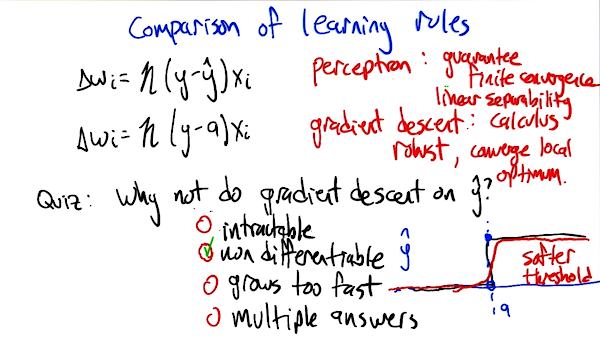 Comparison of learning rules
Δwi = η (y-ŷ) xi
perceptron : guarantee
finite convergence
linear separability
Δwi = η (y-a) xi
gradient descent : calculus
robust, converge local
optimum.
Quiz: Why not do gradient descent on ŷ?
intractable
non differentiable
ŷ
grows too fast
softer
threshold
multiple answers
a